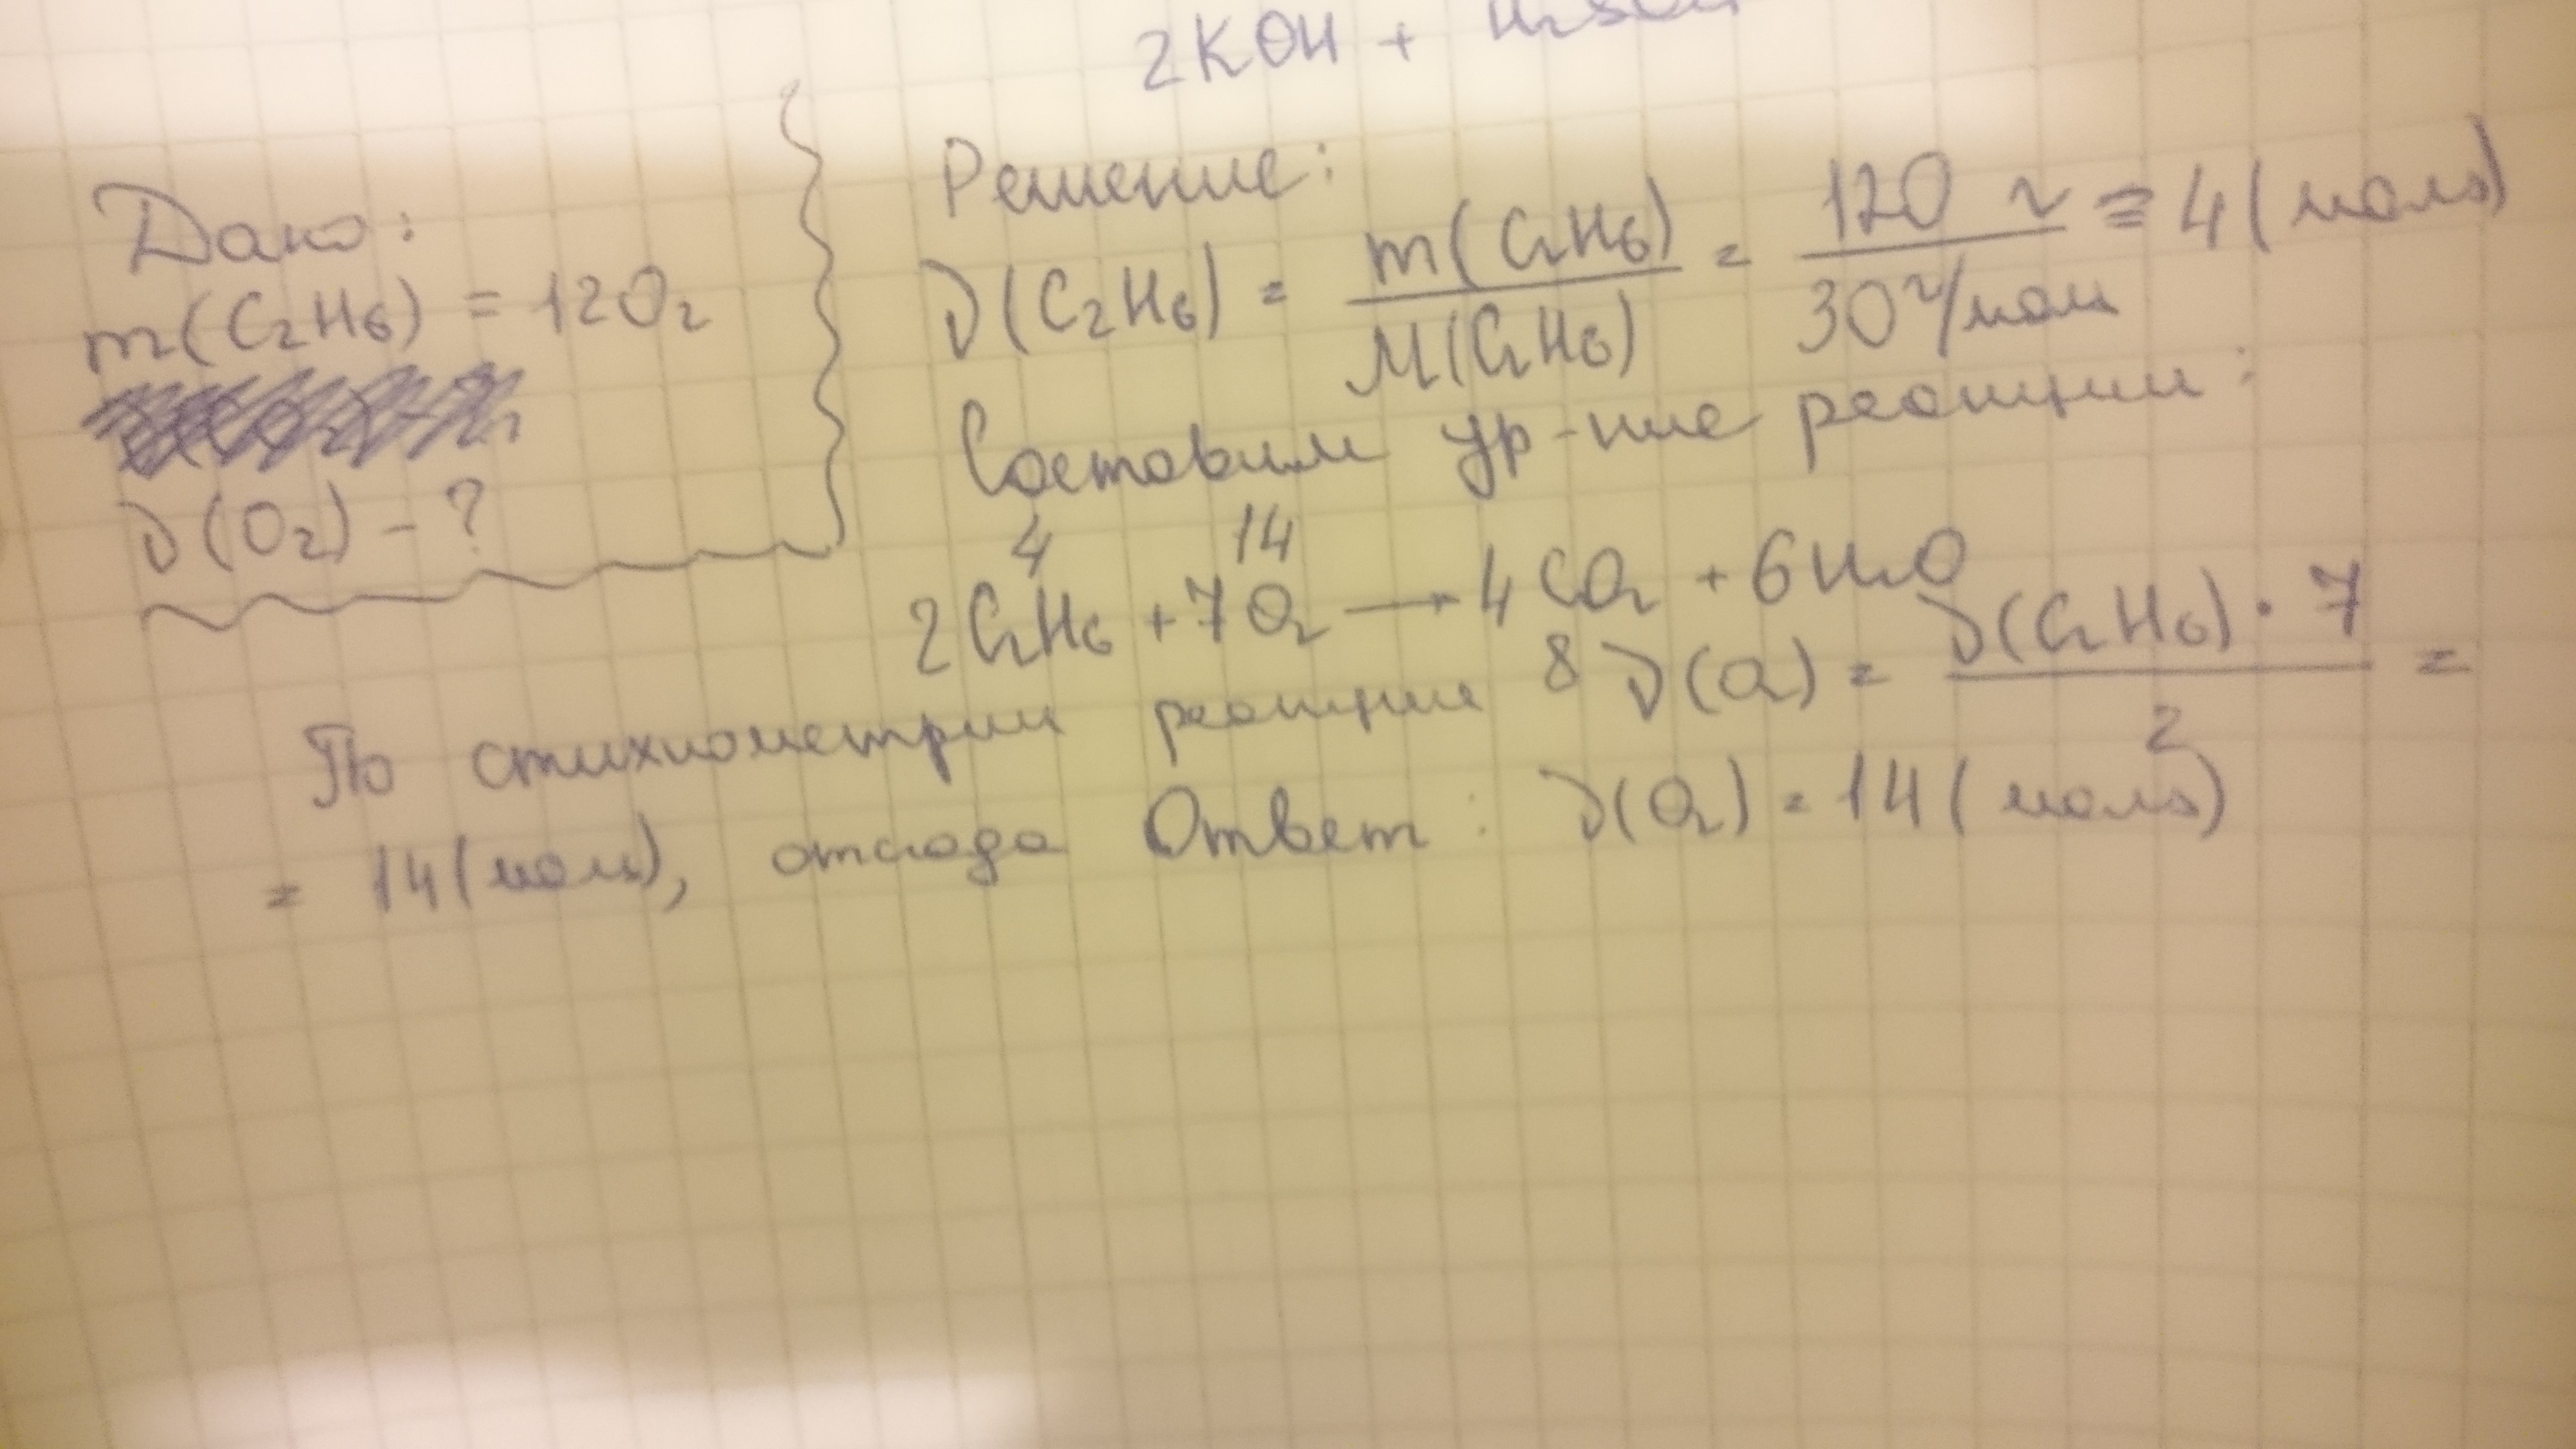 2KOH +
Дано:
m(C₂H₆) = 120г
ν(O₂) - ?
Решение:
ν(C₂H₆) = m(C₂H₆) / M(C₂H₆) = 120 г / 30 г/моль = 4 (моль)
Составим ур-ние реакции:
4 14
2C₂H₆ + 7O₂ → 4CO₂ + 6H₂O
По стихиометрии реакции 8 ν(O₂) = ν(C₂H₆) · 7 / 2 =
= 14 (моль), отсюда Ответ: ν(O₂) = 14 (моль)